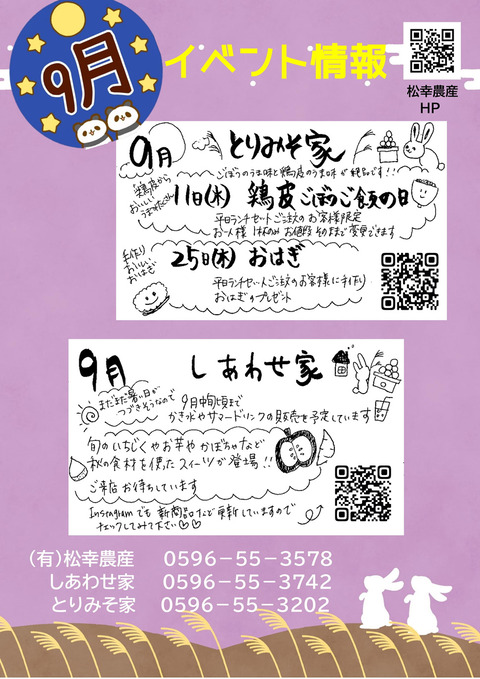 9月
イベント情報
松幸農産
HP
9月 とりみそ家
ごぼうのうま味と鶏皮のうま味が絶品です!!
鶏皮から
おいしい
うまみたくさん
11日(木) 鶏皮ごぼうご飯の日
平日ランチセットご注文のお客様限定
お一人様 1杯のみ お値段そのままで変更できます
手作り
おいしい
おはぎ
25日(木) おはぎ
平日ランチセットご注文のお客様に手作り
おはぎ プレゼント
9月 しあわせ家
まだまだ暑い日が
つづきそうなので
9月中旬頃まで
かき氷やサマードリンクの販売を予定しています
旬のいちじくやお芋やかぼちゃなど
秋の食材を使ったスイーツが登場!!
ご来店お待ちしています
Instagramでも新商品など更新していますので
チェックしてみて下さい♡♡
(有)松幸農産 0596-55-3578
しあわせ家 0596-55-3742
とりみそ家 0596-55-3202